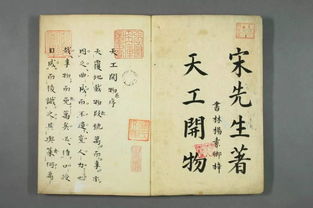 宋先生著
書林楊素卿梓
天工開物
天工開物序
天覆地載物數號萬而事亦
因之曲成而不遺豈人力也
哉事物而既萬矣必待口授
目成而後識之其與幾何萬